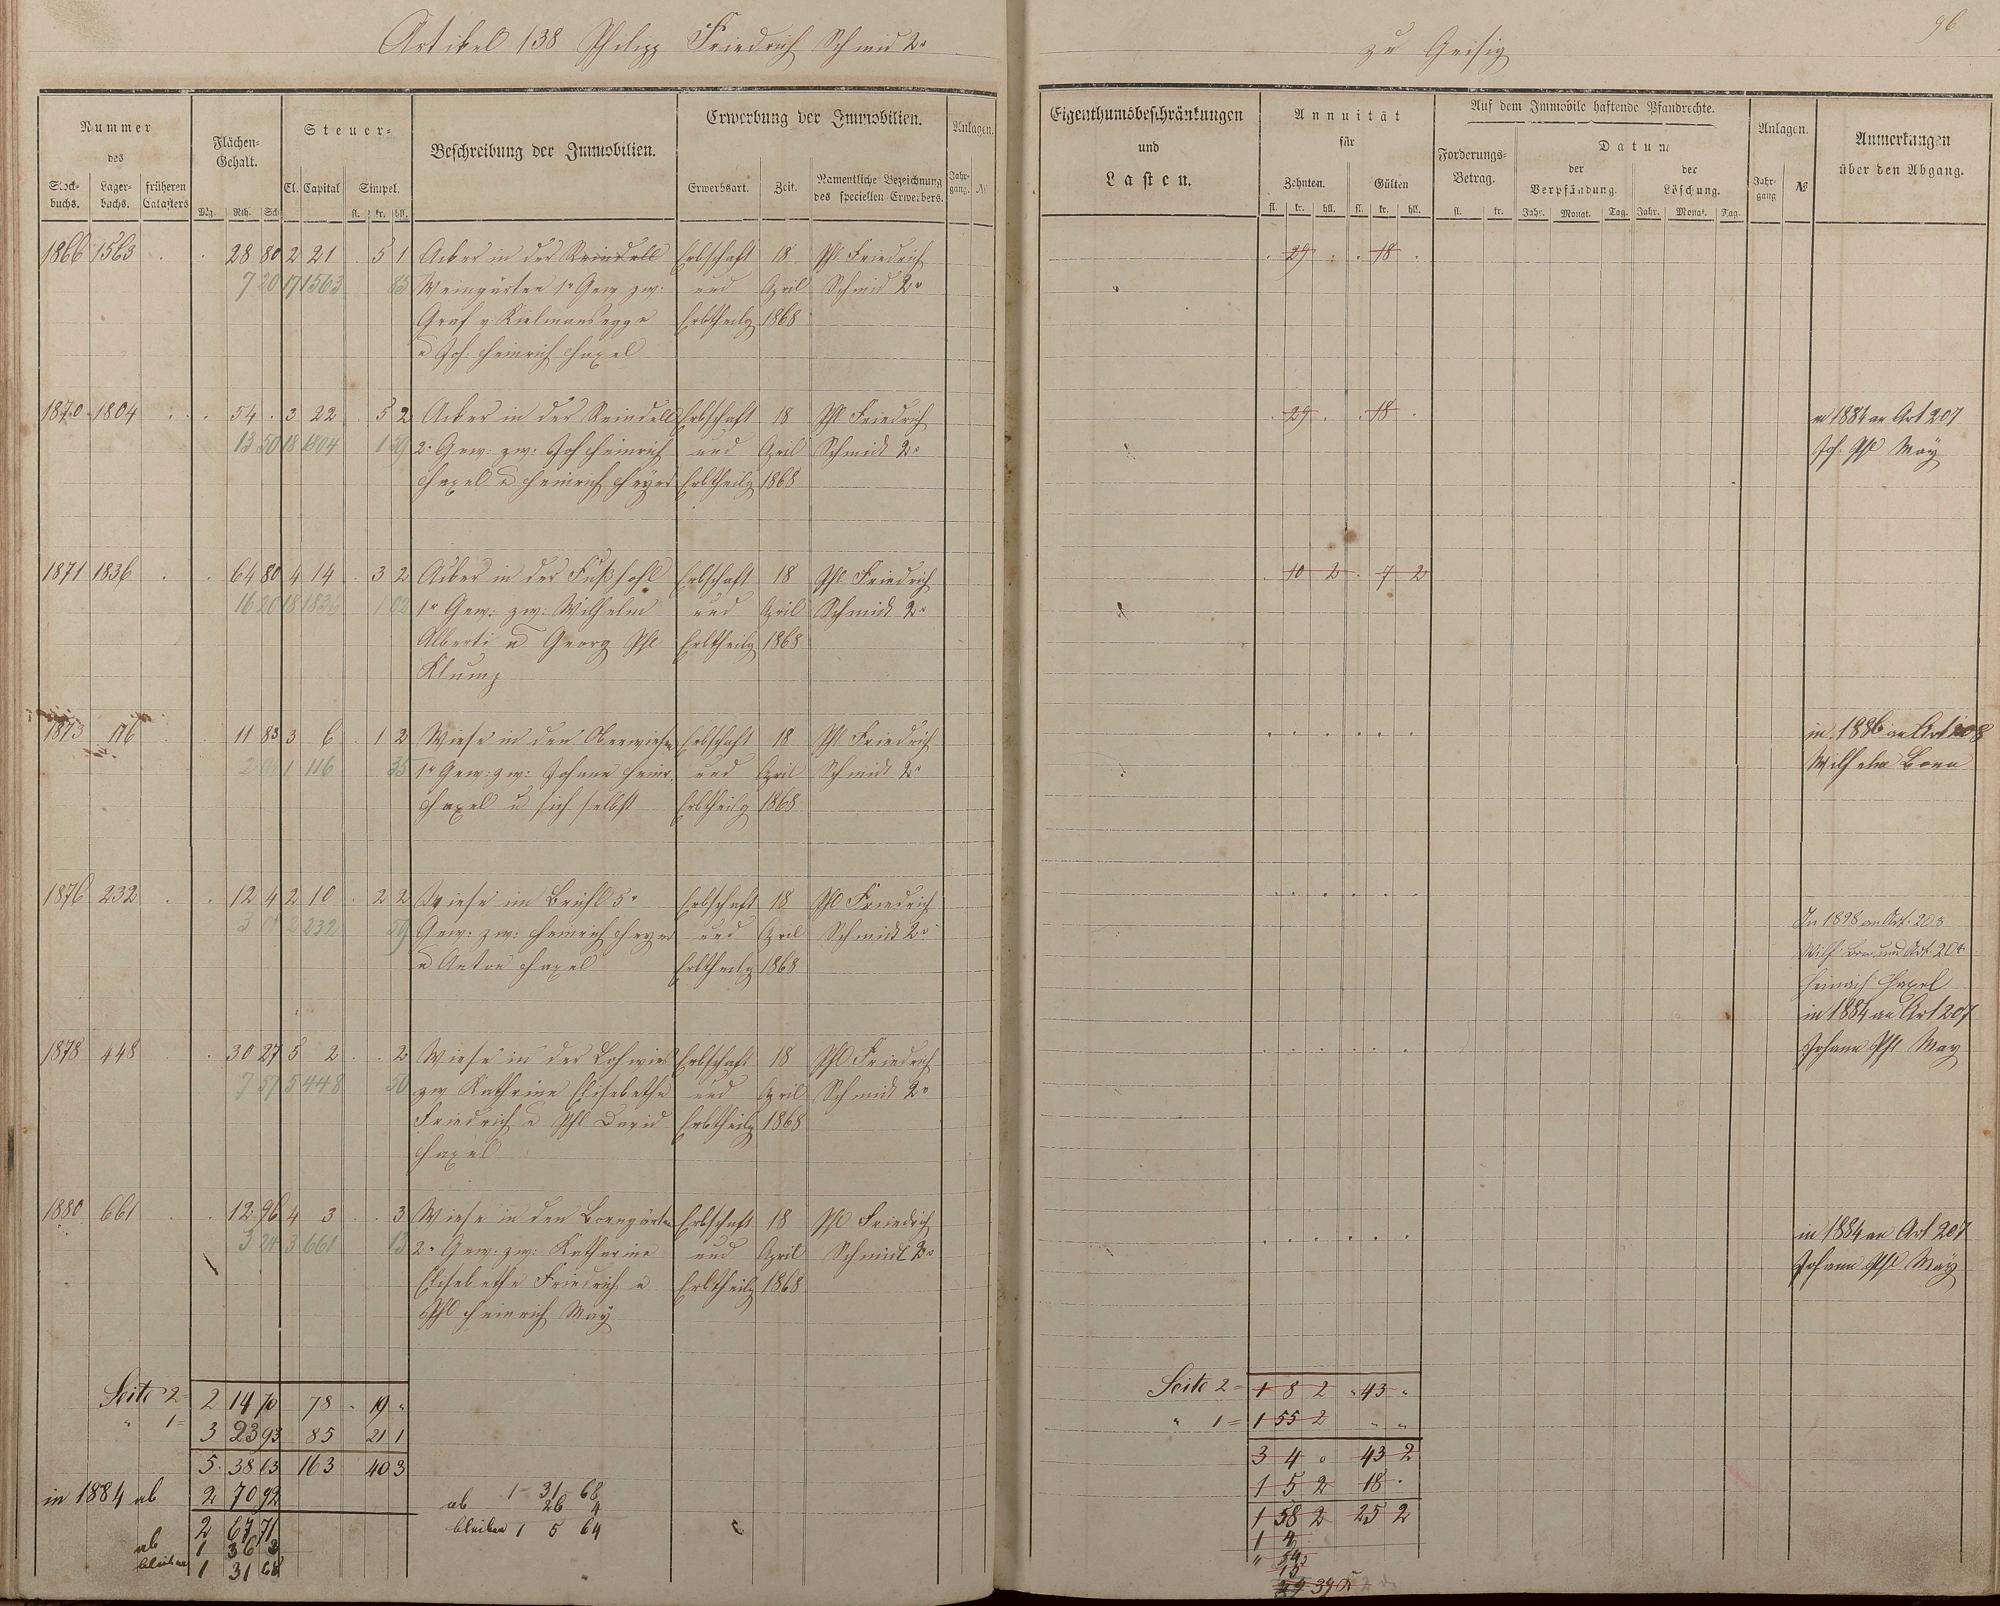 Artikel 138 Philipp Friedrich Schmid 2r
zu Geisig
96
Nummer
des
Stock-
buchs.
Lager-
buchs.
früheren
Catasters
Flächen-
Gehalt.
Mg. Rth. Sch.
Steuer-
Cl. Capital Simpel.
fl. kr. hll.
Beschreibung der Immobilien.
Erwerbung der Immobilien.
Erwerbsart. Zeit. Namentliche Bezeichnung
des speciellen Erwerbers.
Anlagen.
Jahr-
gang. №
Eigenthumsbeschränkungen
und
Lasten.
Annuität
für
Zehnten. Gülten
fl. kr. hll. fl. kr. hll.
Auf dem Immobile haftende Pfandrechte.
Forderungs-
Betrag.
fl. kr.
Datum
der
Verpfändung.
der
Löschung.
Jahr. Monat. Tag. Jahr. Monat. Tag.
Anlagen.
Jahr-
gang №
Anmerkungen
über den Abgang.
1866 1563 28 80 2 21 5 1 Acker in der Reindell Erbschaft 18 Phl Friedrich 29 18
7 20 17 1563 85 Weingärten 1r Gew zw: und April Schmid 2r
Graf v. Kielmansegge Erbtheilg 1868
u Joh. Heinrich Haxel
1870 1804 54 3 22 5 2 Acker in der Reindell Erbschaft 18 Phl Friedrich 29 18 in 1884 an Art 207
13 50 18 1804 1 59 2r Gew: zw: Joh Heinrich und April Schmidt 2r Joh. Phl May
Haxel u Heinrich Heyer Erbtheilg 1868
1871 1836 64 80 4 14 3 2 Acker in der Fußhohl Erbschaft 18 Phl Friedrich 10 2 7 2
16 20 18 1836 1 02 1r Gew: zw: Wilhelm und April Schmidt 2r
Alberti u Georg Phl Erbtheilg 1868
Klump
1873 116 11 83 3 6 1 2 Wiese in den Oberwiesen Erbschaft 18 Phl Friedrich in 1886 an Art 208
2 96 1 116 35 1r Gew: zw: Johann Heinr. und April Schmidt 2r Wilhelm Bonn
Haxel u sich selbst Erbtheilg 1868
1876 232 12 4 2 10 2 2 Wiese im Brühl 5r Erbschaft 18 Phl Friedrich In 1898 an Art. 208
3 01 2 232 59 Gew: zw: Heinrich Heyer und April Schmidt 2r Wilh. Bonn und Art. 204
u Anton Haxel Erbtheilg 1868 Heinrich Haxel
in 1884 an Art 207
1878 448 30 27 5 2 2 Wiese in der Lohwies Erbschaft 18 Phl Friedrich Johann Phl May
7 57 5 448 50 zw Kathrine Elisabethe und April Schmidt 2r
Friedrich u Phl David Erbtheilg 1868
Haxel
1880 661 12 96 4 3 3 Wiese in den Borngärten Erbschaft 18 Phl Friedrich in 1884 an Art 207
3 24 3 661 13 2r Gew: zw: Katharine und April Schmidt 2r Johann Phl May
Elisabethe Friedrich u Erbtheilg 1868
Phl Heinrich May
Seite 2 = 2 14 70 78 19 "
" 1 = 3 23 93 85 21 1
5 38 63 163 40 3
in 1884 ab 2 70 92
2 67 71
ab 1 36 3
bleiben 1 31 68
1 31 68
ab 26 4
bleiben 1 5 64
Seite 2 = 1 8 2 " 43 "
" 1 = 1 55 2 " "
3 4 0 43 2
1 5 2 18
1 58 2 25 2
1 4